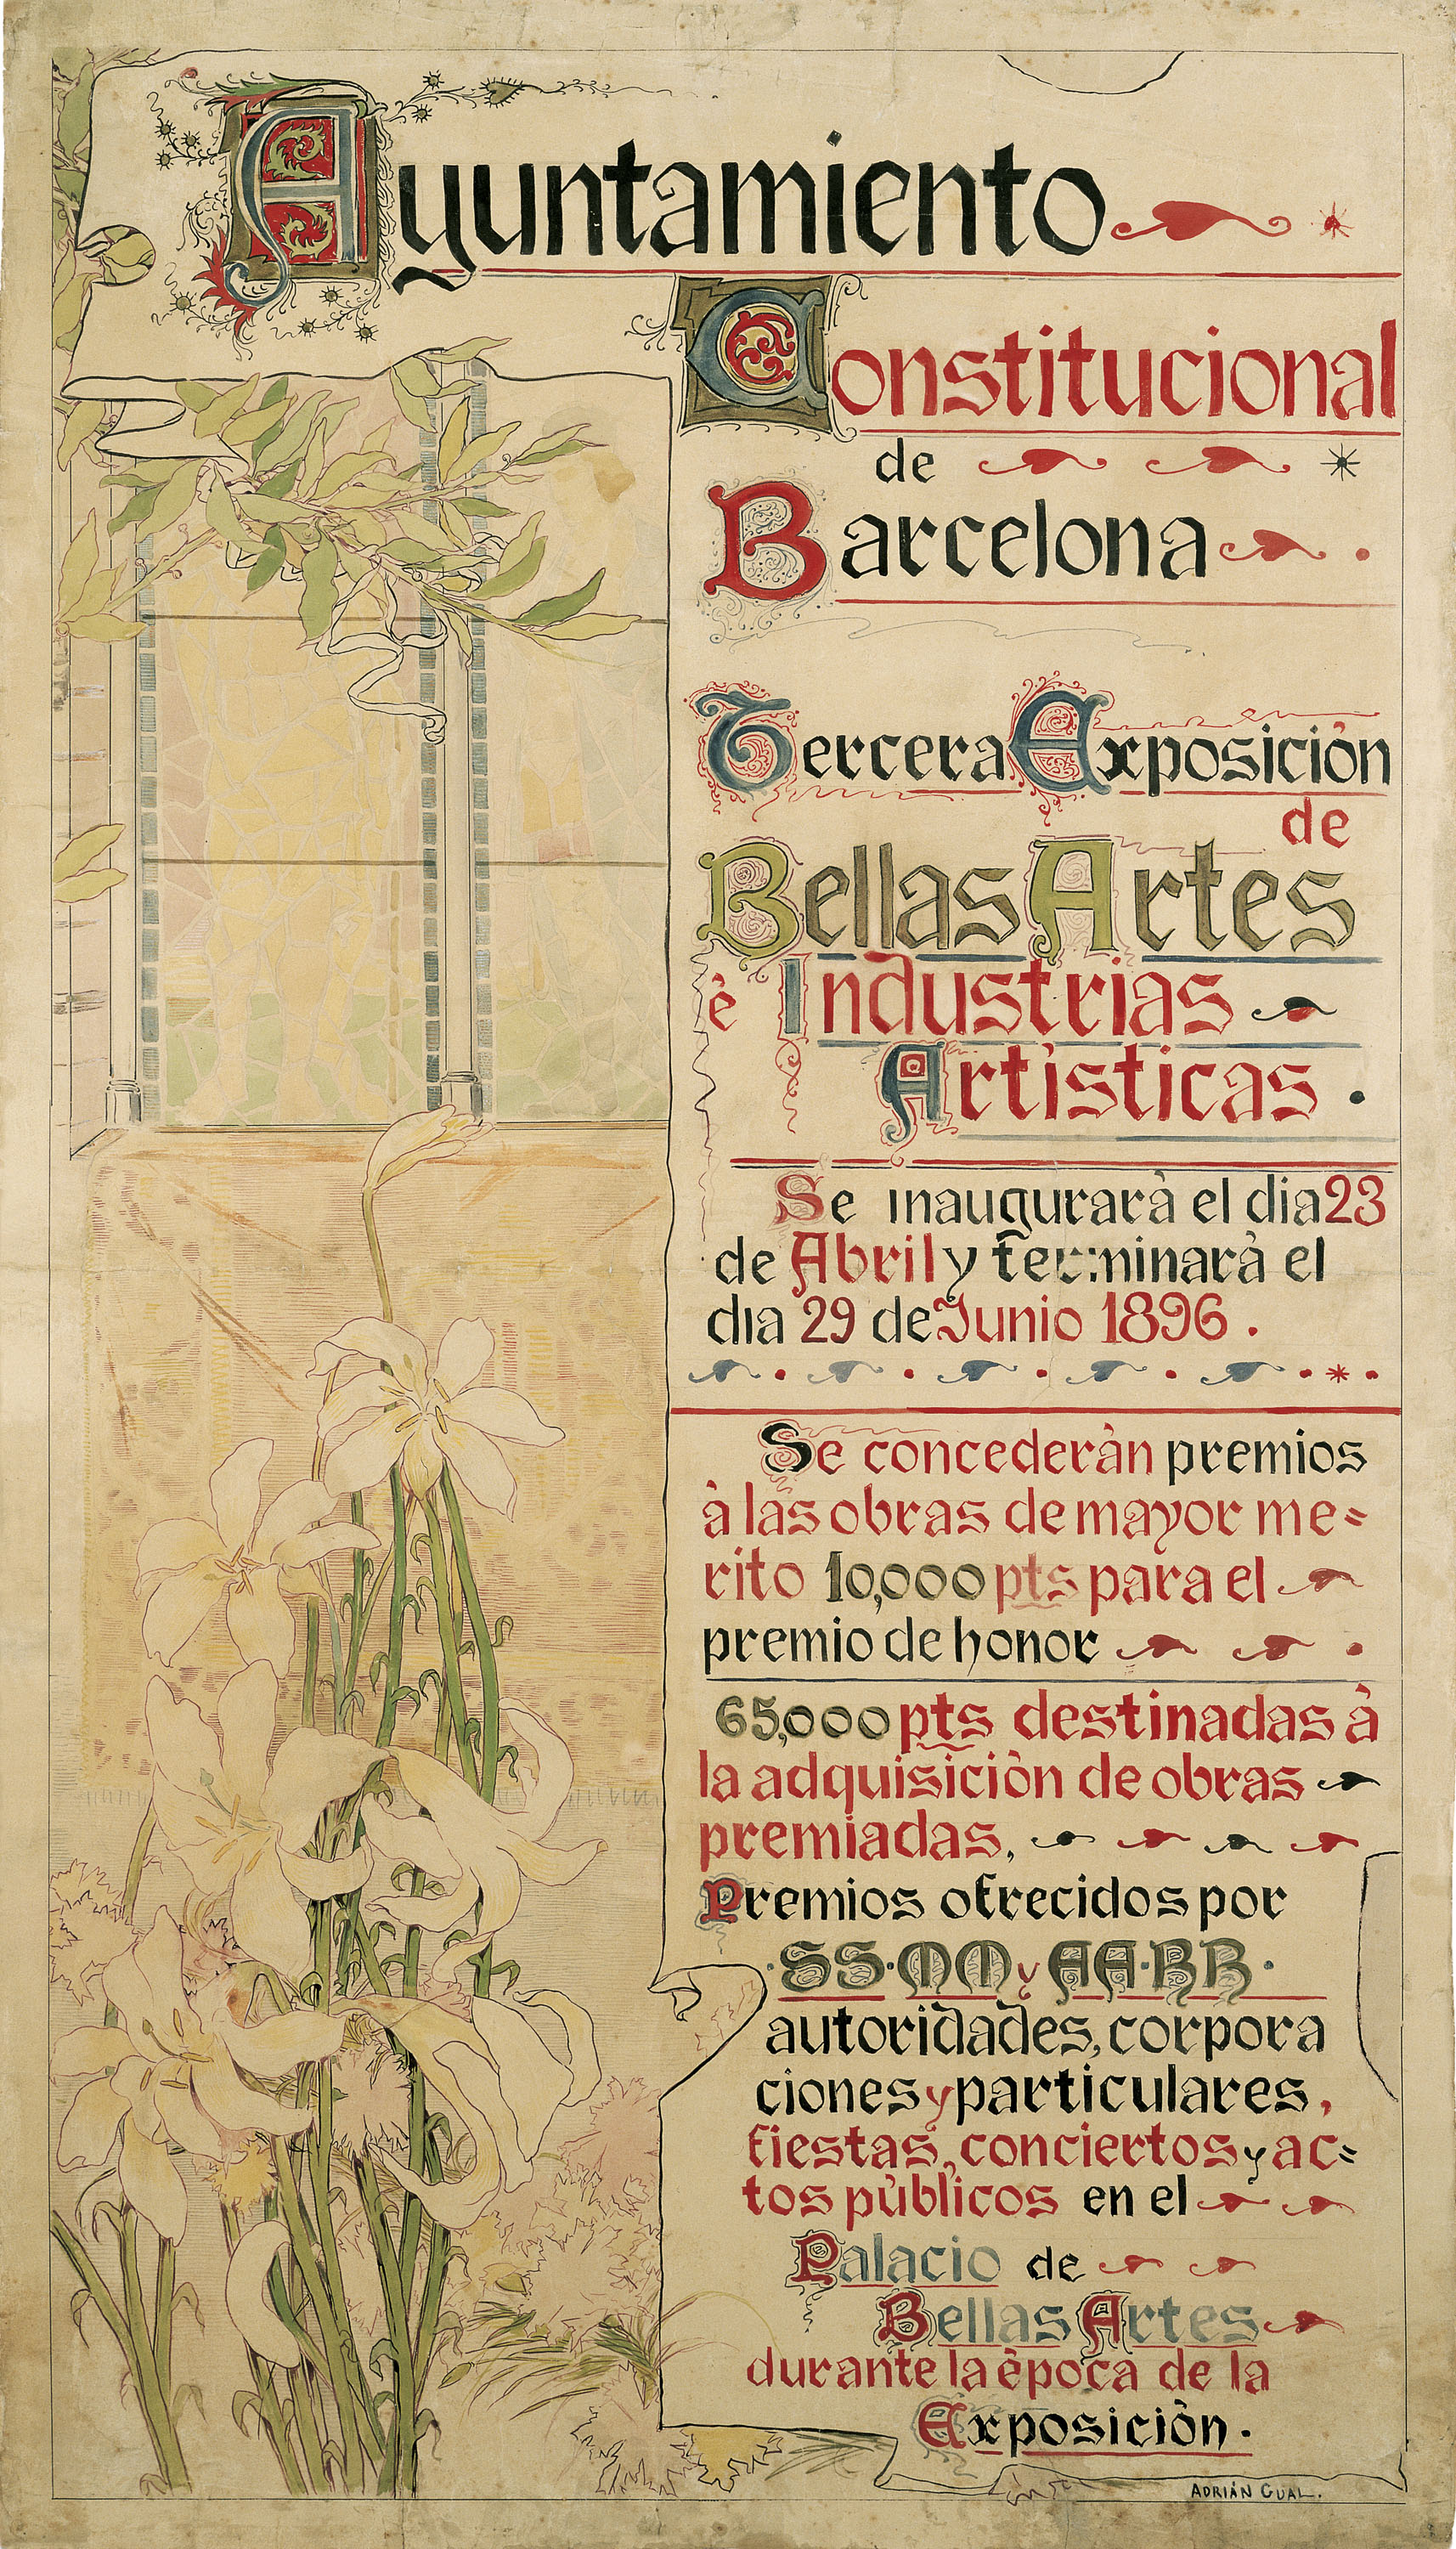 Ayuntamiento
Constitucional
de
Barcelona
Tercera Exposiciòn
de
Bellas Artes
è Industrias
Artisticas.
Se inaugurarà el dia 23
de Abril y terminarà el
dia 29 de Junio 1896.
Se concederàn premios
à las obras de mayor me=
rito 10,000 pts para el
premio de honor
65,000 pts destinadas à
la adquisiciòn de obras
premiadas,
Premios ofrecidos por
·SS·MM y AA·RR·
autoridades, corpora
ciones y particulares,
fiestas, conciertos y ac=
tos pùblicos en el
Palacio de
Bellas Artes
durante la època de la
Exposiciòn.
ADRIÁN GUAL.